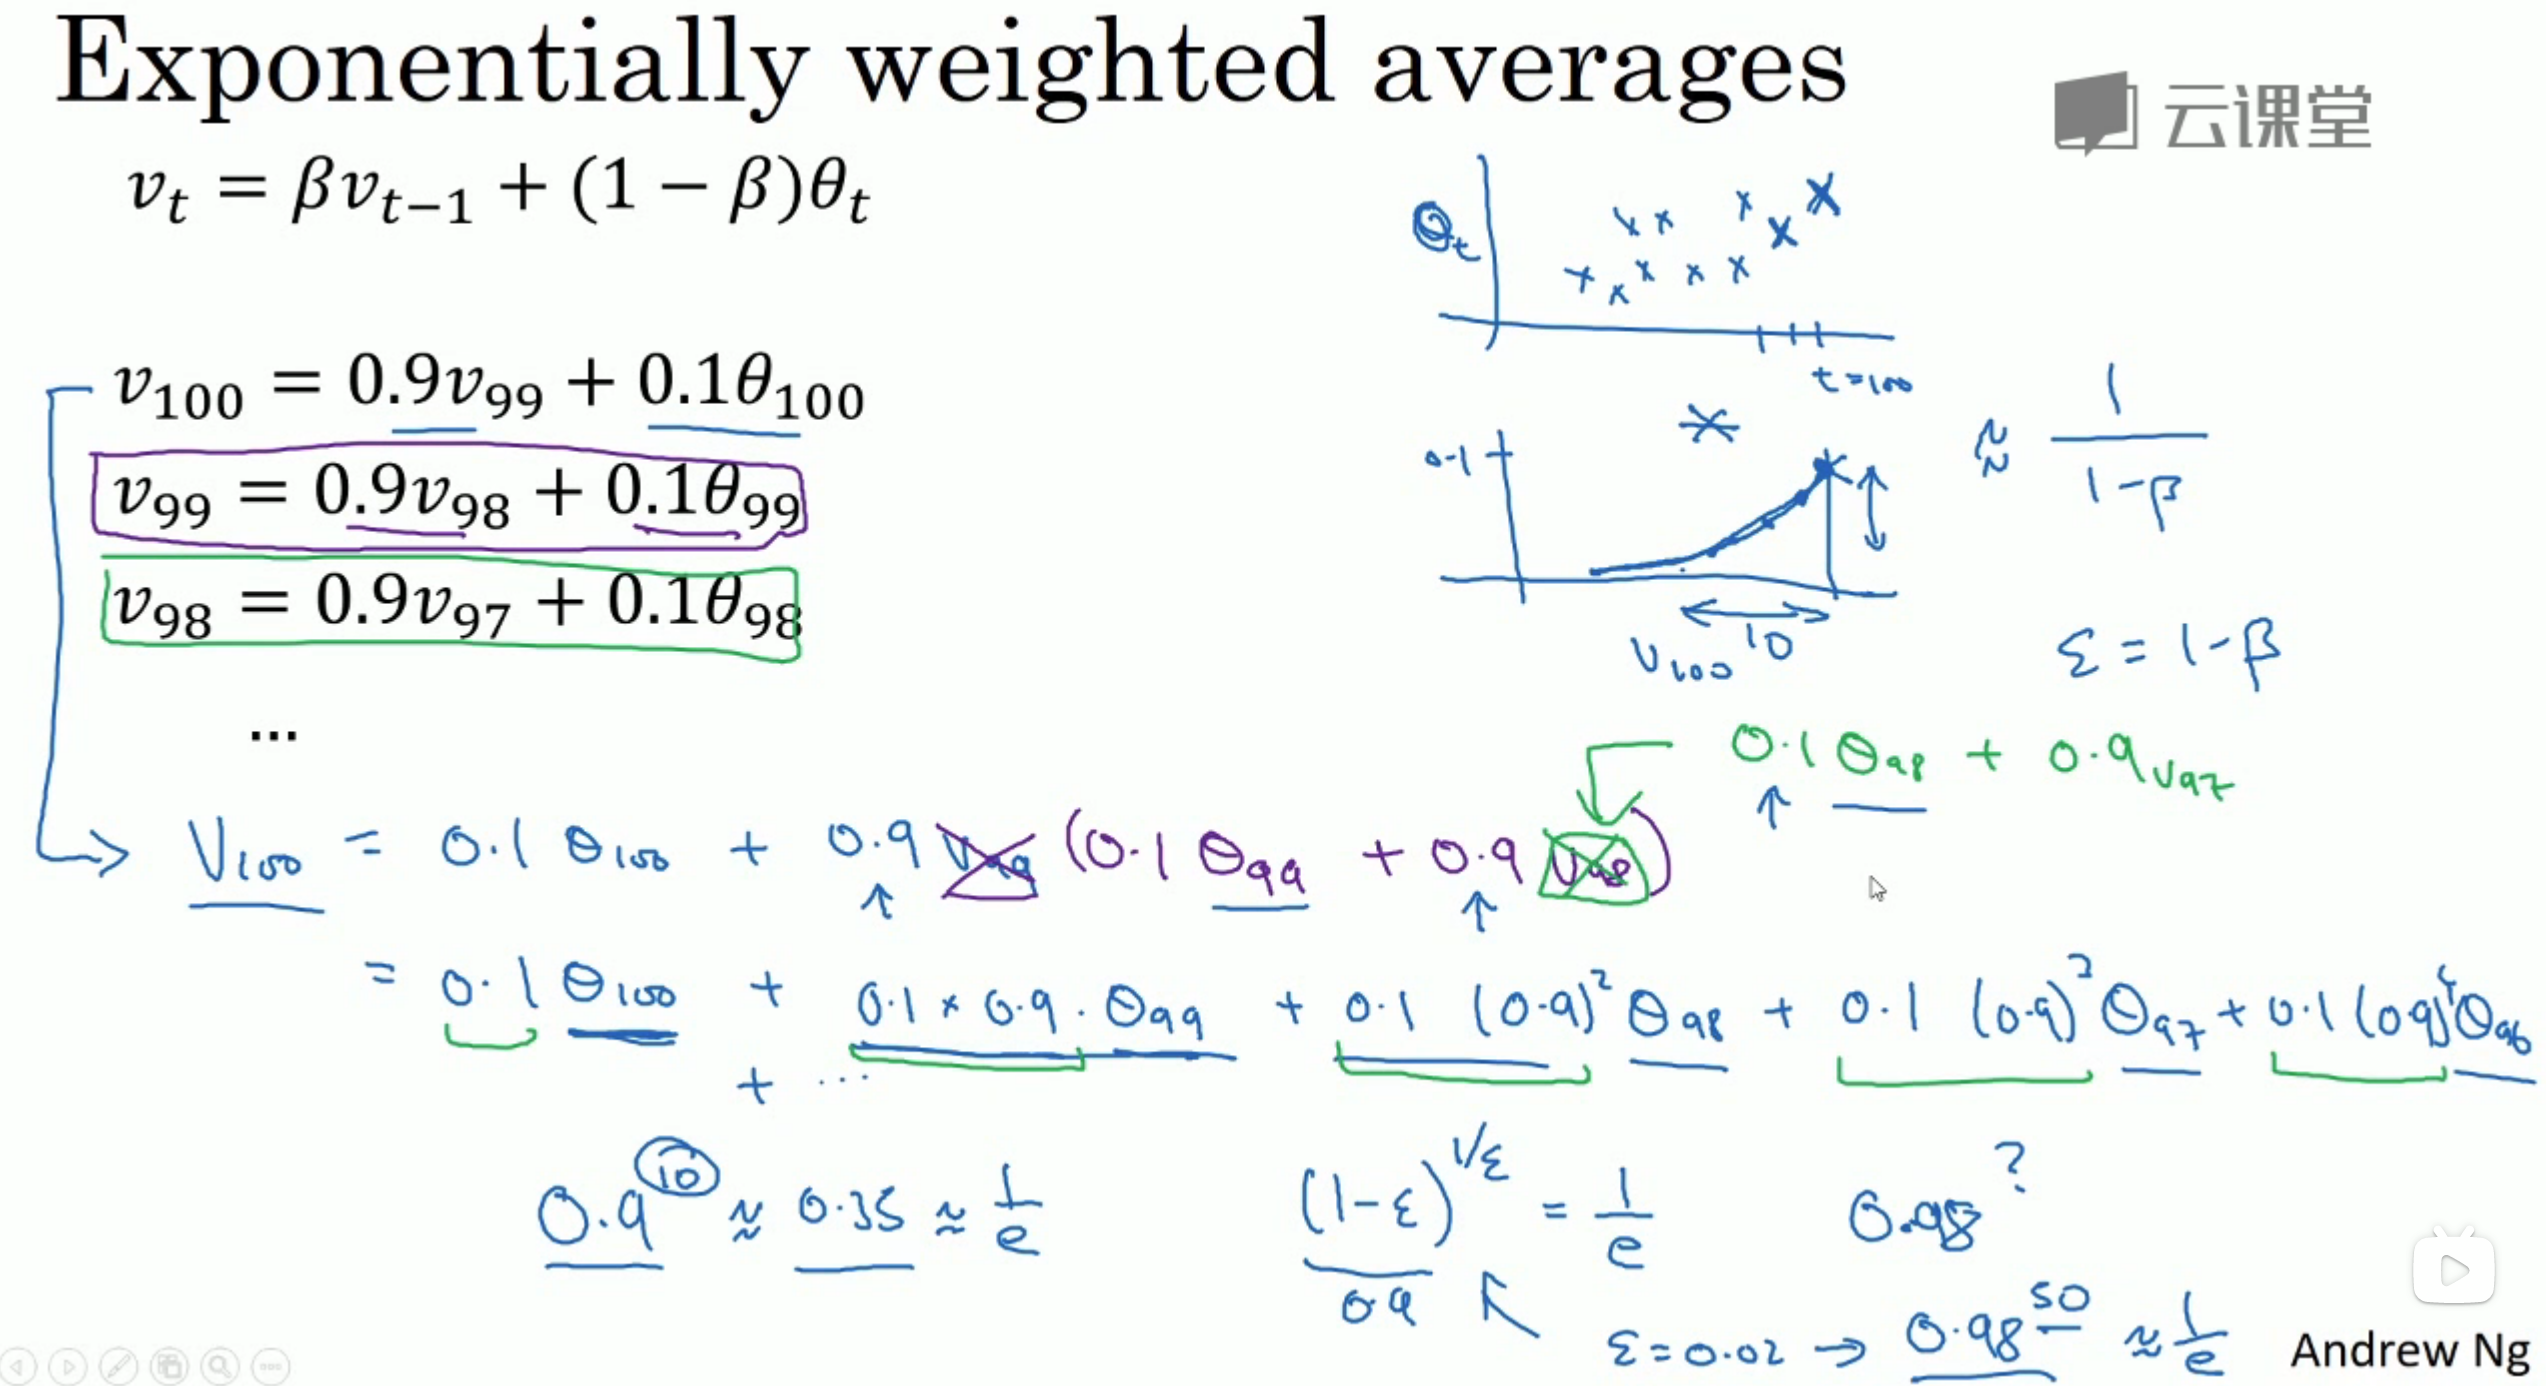 Exponentially weighted averages
云课堂
v_t = βv_{t−1} + (1 − β)θ_t
θ_t
t=100
v_100 = 0.9v_99 + 0.1θ_100
v_99 = 0.9v_98 + 0.1θ_99
v_98 = 0.9v_97 + 0.1θ_98
...
0.1
10
V_100
≈ 1/(1-β)
ε = 1-β
0.1 θ_98 + 0.9 v_97
V_100 = 0.1 θ_100 + 0.9 V_99 (0.1 θ_99 + 0.9 V_98)
= 0.1 θ_100 + 0.1 × 0.9 · θ_99 + 0.1 (0.9)^2 θ_98 + 0.1 (0.9)^3 θ_97 + 0.1 (0.9)^4 θ_96
+ ...
0.9^10 ≈ 0.35 ≈ 1/e
(1-ε)^{1/ε} = 1/e
0.9
0.98^?
ε = 0.02 → 0.98^50 ≈ 1/e
Andrew Ng